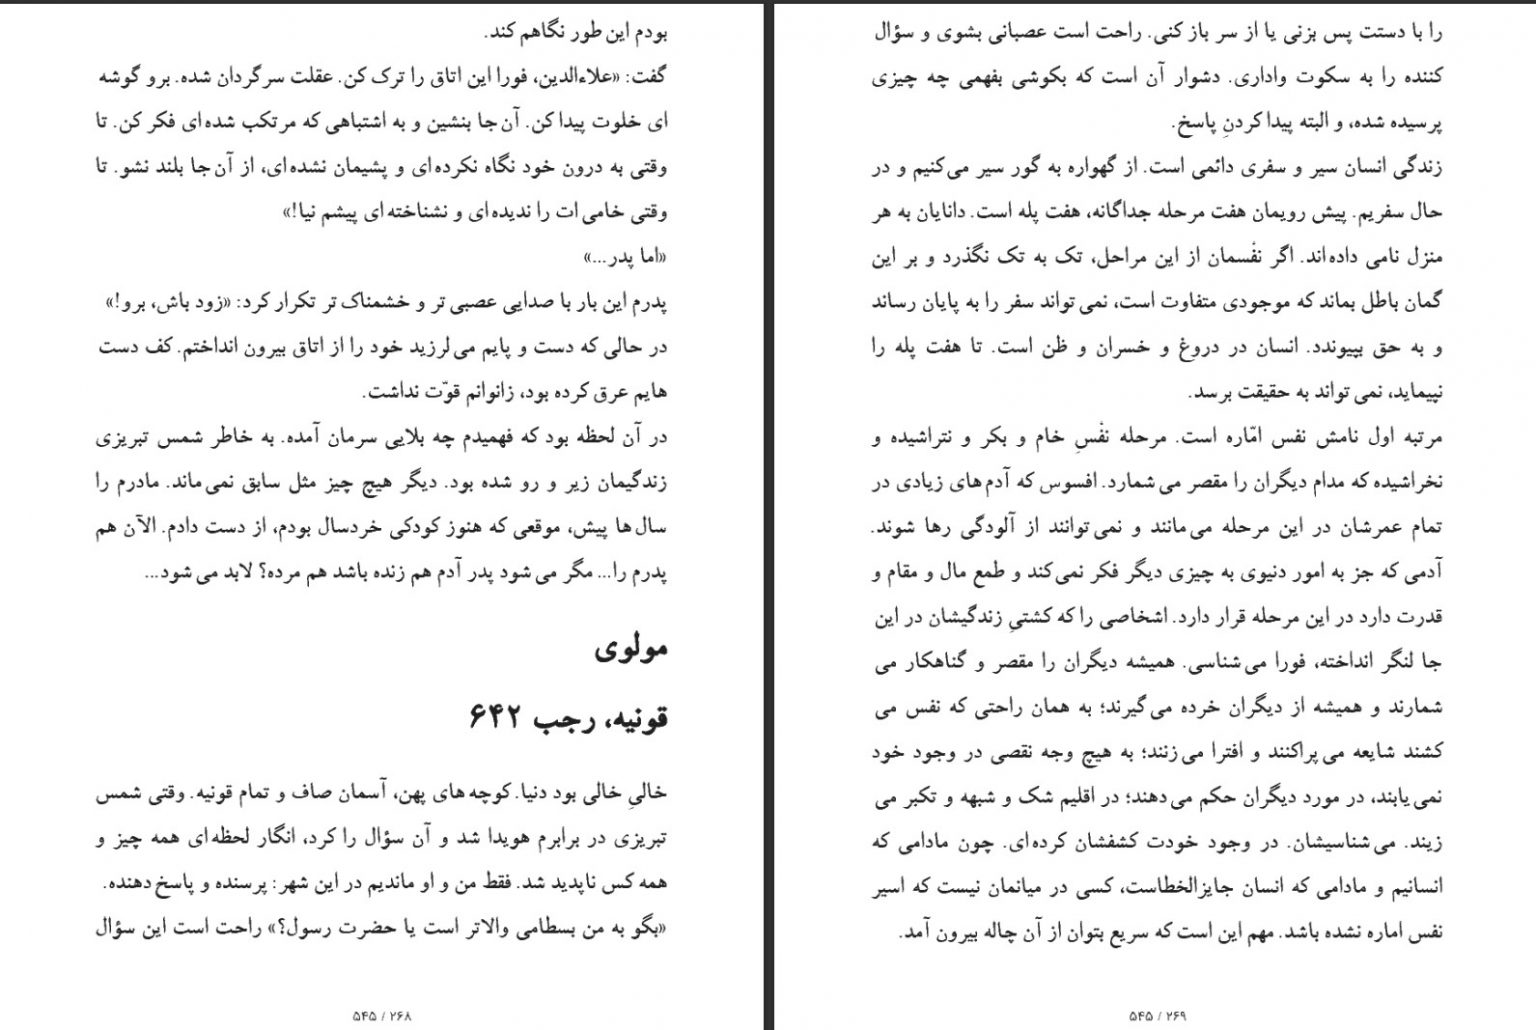 بودم این طور نگاهم کند.
گفت: «علاءالدین، فورا این اتاق را ترک کن. عقلت سرگردان شده. برو گوشه
ای خلوت پیدا کن. آن جا بنشین و به اشتباهی که مرتکب شده ای فکر کن. تا
وقتی به درون خود نگاه نکرده ای و پشیمان نشده ای، از آن جا بلند نشو. تا
وقتی خامی ات را ندیده ای و نشناخته ای پیشم نیا!»
«اما پدر...»
پدرم این بار با صدایی عصبی تر و خشمناک تر تکرار کرد: «زود باش، برو!»
در حالی که دست و پایم می لرزید خود را از اتاق بیرون انداختم. کف دست
هایم عرق کرده بود، زانوانم قوّت نداشت.
در آن لحظه بود که فهمیدم چه بلایی سرمان آمده. به خاطر شمس تبریزی
زندگیمان زیر و رو شده بود. دیگر هیچ چیز مثل سابق نمی ماند. مادرم را
سال ها پیش، موقعی که هنوز کودکی خردسال بودم، از دست دادم. الآن هم
پدرم را... مگر می شود پدر آدم هم زنده باشد هم مرده؟ لابد می شود...
مولوی
قونیه، رجب ۶۴۲
خالیِ خالی بود دنیا. کوچه های پهن، آسمان صاف و تمام قونیه. وقتی شمس
تبریزی در برابرم هویدا شد و آن سؤال را کرد، انگار لحظه ای همه چیز و
همه کس ناپدید شد. فقط من و او ماندیم در این شهر: پرسنده و پاسخ دهنده.
«بگو به من بسطامی والاتر است یا حضرت رسول؟» راحت است این سؤال
۲۶۸ / ۵۴۵
را با دستت پس بزنی یا از سر باز کنی. راحت است عصبانی بشوی و سؤال
کننده را به سکوت واداری. دشوار آن است که بکوشی بفهمی چه چیزی
پرسیده شده، و البته پیدا کردنِ پاسخ.
زندگی انسان سیر و سفری دائمی است. از گهواره به گور سیر می کنیم و در
حال سفریم. پیش رویمان هفت مرحله جداگانه، هفت پله است. دانایان به هر
منزل نامی داده اند. اگر نفْسمان از این مراحل، تک به تک نگذرد و بر این
گمان باطل بماند که موجودی متفاوت است، نمی تواند سفر را به پایان رساند
و به حق بپیوندد. انسان در دروغ و خسران و ظن است. تا هفت پله را
نپیماید، نمی تواند به حقیقت برسد.
مرتبه اول نامش نفس امّاره است. مرحله نفْسِ خام و بکر و نتراشیده و
نخراشیده که مدام دیگران را مقصر می شمارد. افسوس که آدم های زیادی در
تمام عمرشان در این مرحله می مانند و نمی توانند از آلودگی رها شوند.
آدمی که جز به امور دنیوی به چیزی دیگر فکر نمی کند و طمع مال و مقام و
قدرت دارد در این مرحله قرار دارد. اشخاصی را که کشتیِ زندگیشان در این
جا لنگر انداخته، فورا می شناسی. همیشه دیگران را مقصر و گناهکار می
شمارند و همیشه از دیگران خرده می گیرند؛ به همان راحتی که نفس می
کشند شایعه می پراکنند و افترا می زنند؛ به هیچ وجه نقصی در وجود خود
نمی یابند، در مورد دیگران حکم می دهند؛ در اقلیم شک و شبهه و تکبر می
زیند. می شناسیشان. در وجود خودت کشفشان کرده ای. چون مادامی که
انسانیم و مادامی که انسان جایزالخطاست، کسی در میانمان نیست که اسیر
نفس اماره نشده باشد. مهم این است که سریع بتوان از آن چاله بیرون آمد.
۲۶۹ / ۵۴۵